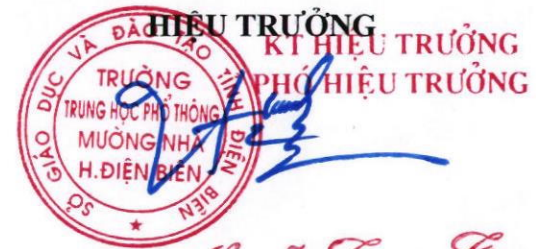 HIỆU TRƯỞNG
KT HIỆU TRƯỞNG
PHÓ HIỆU TRƯỞNG
SỞ GIÁO DỤC VÀ ĐÀO TẠO TỈNH ĐIỆN BIÊN
TRƯỜNG
TRUNG HỌC PHỔ THÔNG
MƯỜNG NHÀ
H.ĐIỆN BIÊN